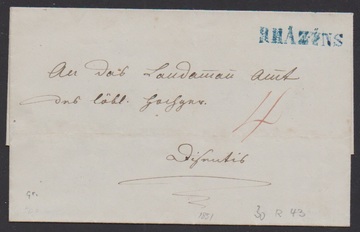 RHÄZÜNS
An das Landamañ Amt
des löbl. Hochger.
4
Disentis
Gr.
1851
30 R 43